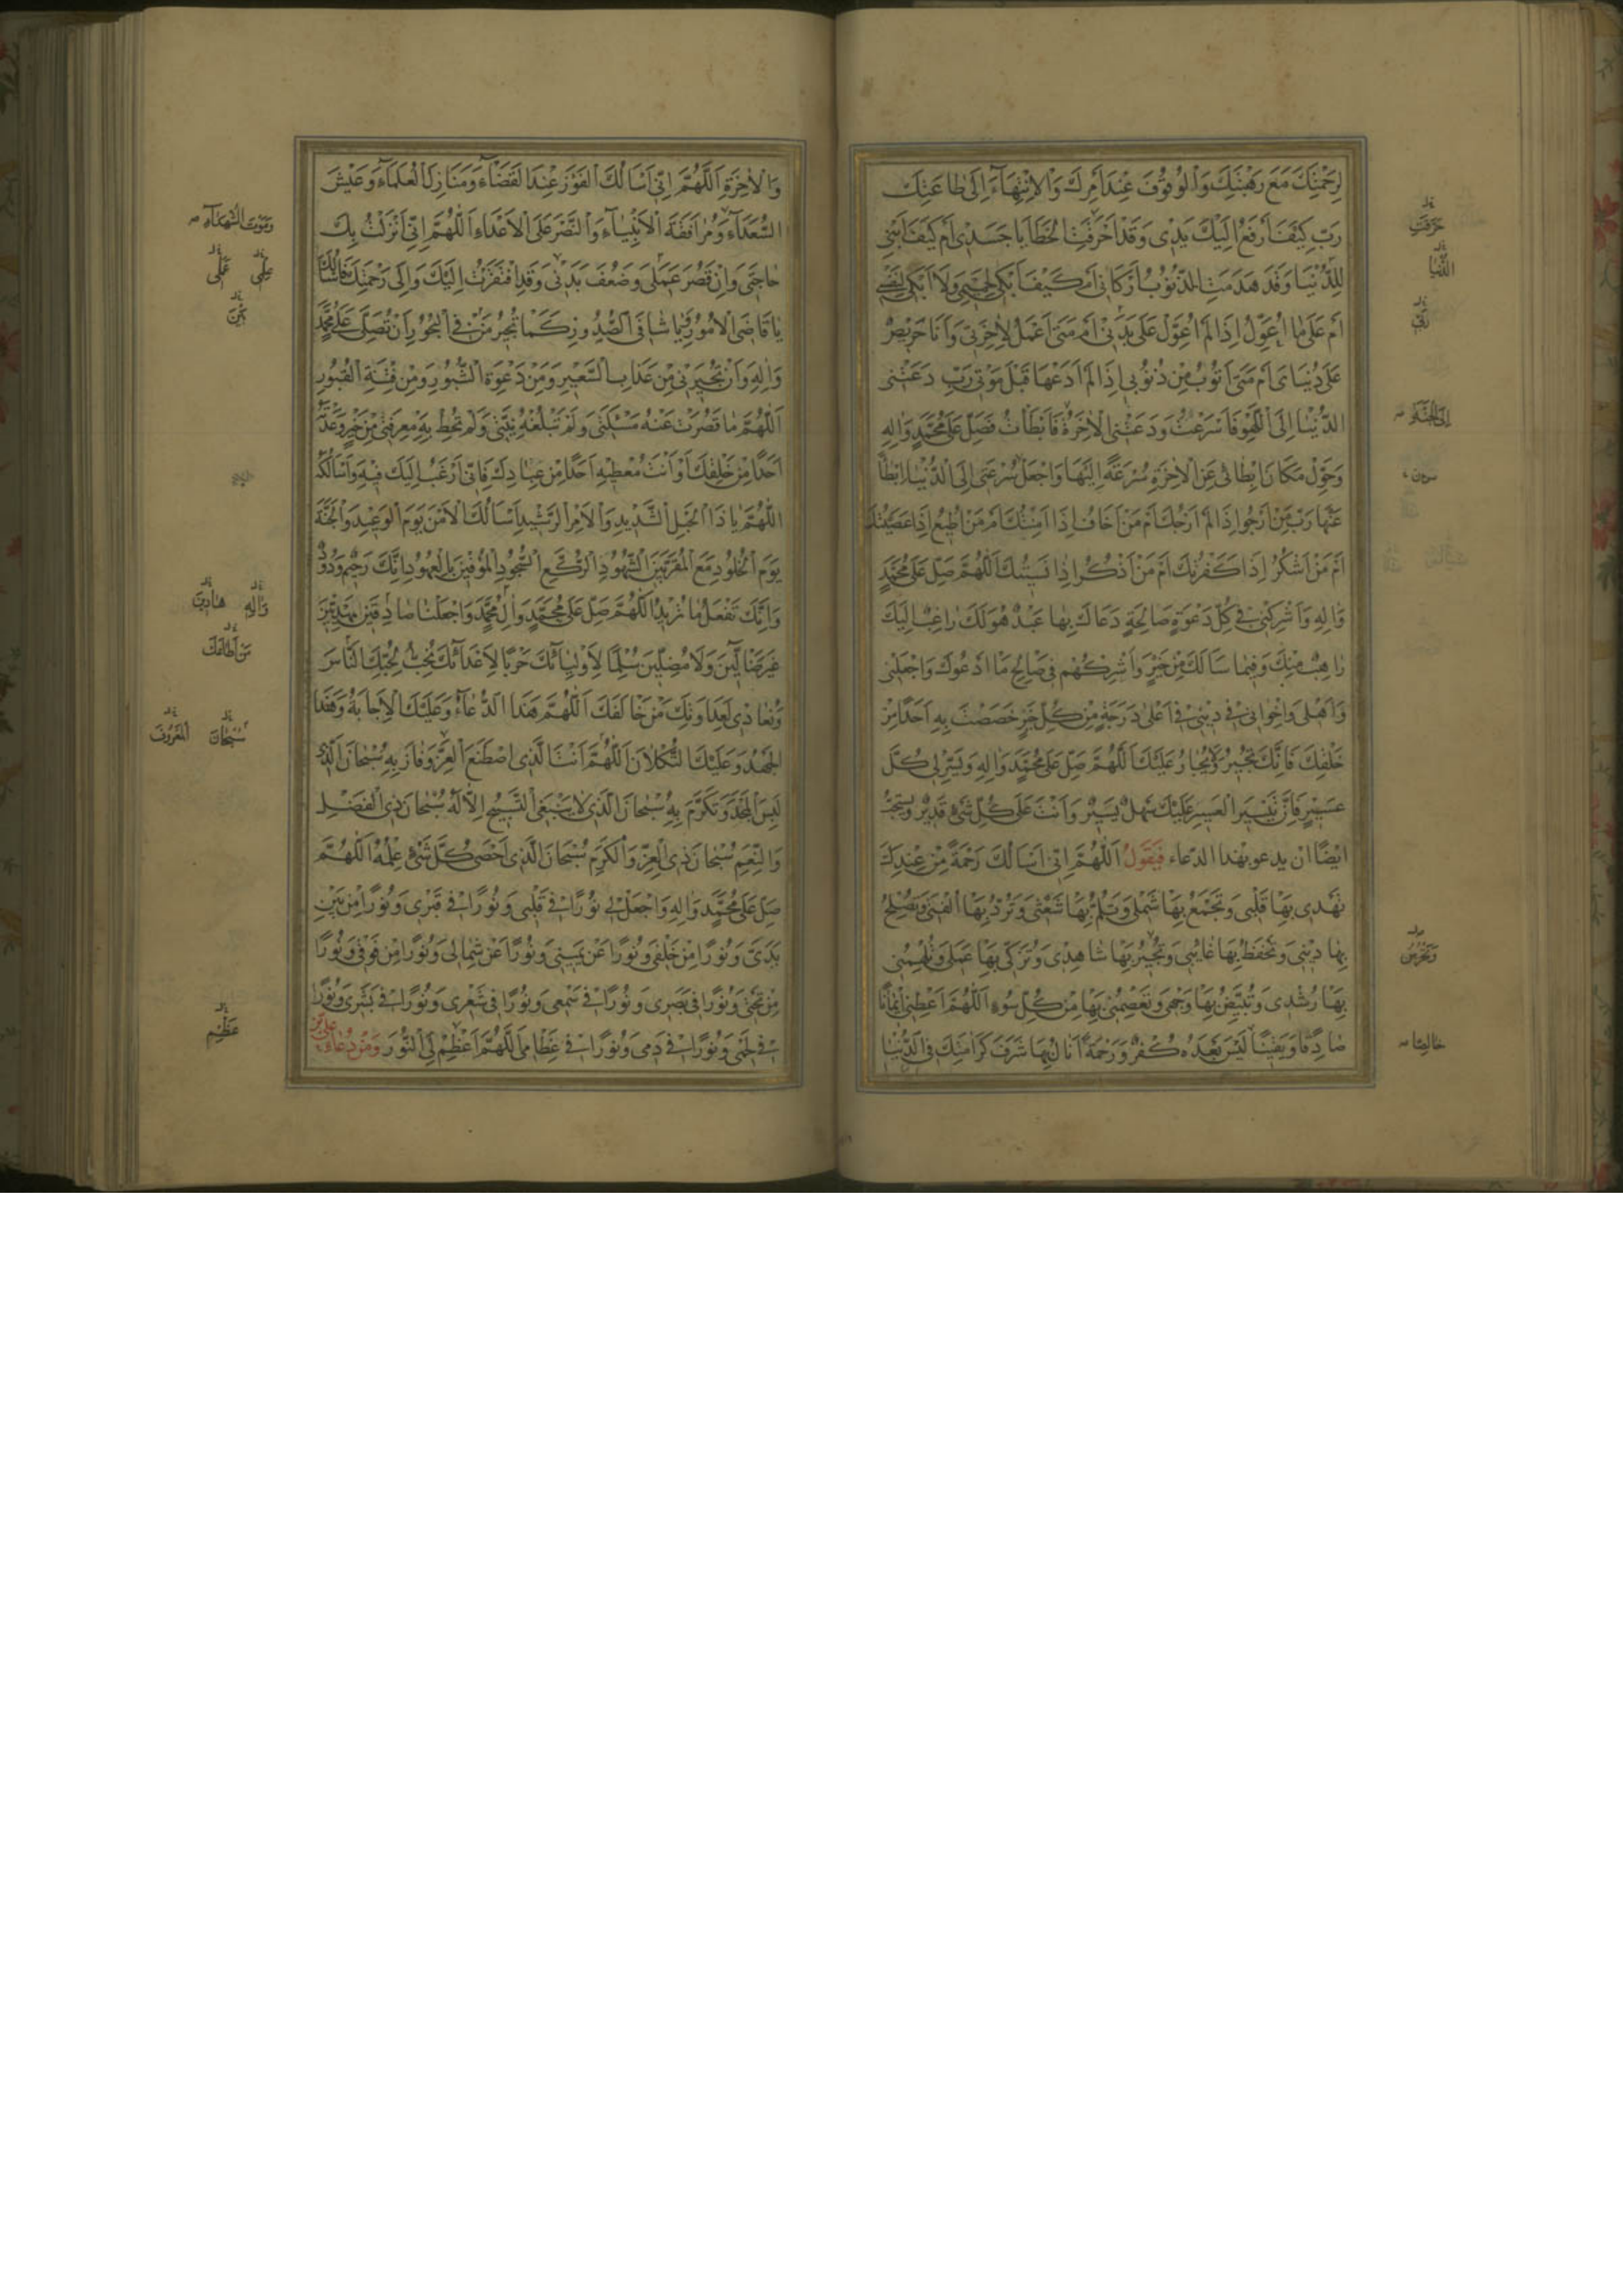 لِرَحْمَتِكَ مَعَ رَهْبَتِكَ وَالْوُقُوفَ عِنْدَ اَمْرِكَ وَالْاِنْتِهَاءَ اِلَى طَاعَتِكَ
رَبِّ كَيْفَ اَرْفَعُ اِلَيْكَ يَدِى وَقَدْ اَحْرَقَتِ الْخَطَايَا جَسَدِى اَمْ كَيْفَ اَبْنِى
لِلدُّنْيَا وَقَدْ هَدَمَتِ الذُّنُوبُ اَرْكَانِى اَمْ كَيْفَ اَبْكِى لِحَمِيمِى وَلَا اَبْكِى لِنَفْسِى
اَمْ عَلَى مَا اُعَوِّلُ اِذَا لَمْ اُعَوِّلْ عَلَى بَدَنِى اَمْ مَتَى اَعْمَلُ لِاٰخِرَتِى وَاَنَا حَرِيصٌ
عَلَى دُنْيَاىَ اَمْ مَتَى اَتُوبُ مِنْ ذُنُوبِى اِذَا لَمْ اَدَعْهَا قَبْلَ مَوْتِى رَبِّ دَعَتْنِى
الدُّنْيَا اِلَى اللَّهْوِ فَاَسْرَعْتُ وَدَعَتْنِى الْاٰخِرَةُ فَاَبْطَأْتُ فَصَلِّ عَلَى مُحَمَّدٍ وَاٰلِهِ
وَحَوِّلْ مَكَانَ اِبْطَائِى عَنِ الْاٰخِرَةِ سُرْعَةً اِلَيْهَا وَاجْعَلْ سُرْعَتِى اِلَى الدُّنْيَا اِبْطَاءً
عَنْهَا رَبِّ مَنْ اَرْجُو اِذَا لَمْ اَرْجُكَ اَمْ مَنْ اَخَافُ اِذَا اَمِنْتُكَ اَمْ مَنْ اُطِيعُ اِذَا عَصَيْتُكَ
اَمْ مَنْ اَشْكُرُ اِذَا كَفَرْتُكَ اَمْ مَنْ اَذْكُرُ اِذَا نَسِيتُكَ اَللّٰهُمَّ صَلِّ عَلَى مُحَمَّدٍ
وَاٰلِهِ وَاَشْرِكْنِى فِى كُلِّ دَعْوَةٍ صَالِحَةٍ دَعَاكَ بِهَا عَبْدٌ هُوَ لَكَ رَاغِبٌ اِلَيْكَ
رَاهِبٌ مِنْكَ وَفِيمَا سَاَلَكَ مِنْ خَيْرٍ وَاَشْرِكْهُمْ فِى صَالِحِ مَا اَدْعُوكَ وَاجْعَلْنِى
وَاَهْلِى وَاِخْوَانِى فِى دِينِى فِى اَعْلَى دَرَجَةٍ مِنْ كُلِّ خَيْرٍ خَصَصْتَ بِهِ اَحَدًا مِنْ
خَلْقِكَ فَاِنَّكَ تُجِيرُ وَلَا يُجَارُ عَلَيْكَ اَللّٰهُمَّ صَلِّ عَلَى مُحَمَّدٍ وَاٰلِهِ وَيَسِّرْ لِى كُلَّ
عَسِيرٍ فَاِنَّ تَيْسِيرَ الْعَسِيرِ عَلَيْكَ سَهْلٌ يَسِيرٌ وَاَنْتَ عَلَى كُلِّ شَىْءٍ قَدِيرٌ ويستحبّ
ايضًا ان يدعو بهذا الدعاء فَيَقُولُ اَللّٰهُمَّ اِنِّى اَسْاَلُكَ رَحْمَةً مِنْ عِنْدِكَ
تَهْدِى بِهَا قَلْبِى وَتَجْمَعُ بِهَا شَمْلِى وَتَلُمُّ بِهَا شَعْثِى وَتَرُدُّ بِهَا اُلْفَتِى وَتُصْلِحُ
بِهَا دِينِى وَتَحْفَظُ بِهَا غَائِبِى وَتُجِيرُ بِهَا شَاهِدِى وَتُزَكِّى بِهَا عَمَلِى وَتُلْهِمُنِى
بِهَا رُشْدِى وَتُبَيِّضُ بِهَا وَجْهِى وَتَعْصِمُنِى بِهَا مِنْ كُلِّ سُوءٍ اَللّٰهُمَّ اَعْطِنِى اِيمَانًا
صَادِقًا وَيَقِينًا لَيْسَ بَعْدَهُ كُفْرٌ وَرَحْمَةً اَنَالُ بِهَا شَرَفَ كَرَامَتِكَ فِى الدُّنْيَا
حَرَّقَتِ
اِلَى الْجَنَّةِ
وَتَحْرُسُ
خَالِصًا
وَالْاٰخِرَةِ اَللّٰهُمَّ اِنِّى اَسْاَلُكَ الْفَوْزَ عِنْدَ الْقَضَاءِ وَمَنَازِلَ الْعُلَمَاءِ وَعَيْشَ
السُّعَدَاءِ وَمُرَافَقَةَ الْاَنْبِيَاءِ وَالنَّصْرَ عَلَى الْاَعْدَاءِ اَللّٰهُمَّ اِنِّى اَنْزَلْتُ بِكَ
حَاجَتِى وَاِنْ قَصُرَ عَمَلِى وَضَعُفَ بَدَنِى وَقَدِ افْتَقَرْتُ اِلَيْكَ وَاِلَى رَحْمَتِكَ فَاَسْاَلُكَ
يَا قَاضِىَ الْاُمُورِ وَيَا شَافِىَ الصُّدُورِ كَمَا تُجِيرُ مَنْ فِى الْبُحُورِ اَنْ تُصَلِّىَ عَلَى مُحَمَّدٍ
وَاٰلِهِ وَاَنْ تُجِيرَنِى مِنْ عَذَابِ السَّعِيرِ وَمِنْ دَعْوَةِ الثُّبُورِ وَمِنْ فِتْنَةِ الْقُبُورِ
اَللّٰهُمَّ مَا قَصُرَتْ عَنْهُ مَسْئَلَتِى وَلَمْ تَبْلُغْهُ نِيَّتِى وَلَمْ تُحِطْ بِهِ مَعْرِفَتِى مِنْ خَيْرٍ وَعَدْتَهُ
اَحَدًا مِنْ خَلْقِكَ اَوْ اَنْتَ مُعْطِيهِ اَحَدًا مِنْ عِبَادِكَ فَاِنِّى اَرْغَبُ اِلَيْكَ فِيهِ وَاَسْاَلُكَهُ
اَللّٰهُمَّ يَا ذَا الْحَبْلِ الشَّدِيدِ وَالْاَمْرِ الرَّشِيدِ اَسْاَلُكَ الْاَمْنَ يَوْمَ الْوَعِيدِ وَالْجَنَّةَ
يَوْمَ الْخُلُودِ مَعَ الْمُقَرَّبِينَ الشُّهُودِ الرُّكَّعِ السُّجُودِ الْمُوفِينَ بِالْعُهُودِ اِنَّكَ رَحِيمٌ وَدُودٌ
وَاِنَّكَ تَفْعَلُ مَا تُرِيدُ اَللّٰهُمَّ صَلِّ عَلَى مُحَمَّدٍ وَاٰلِ مُحَمَّدٍ وَاجْعَلْنَا صَادِقِينَ مَهْدِيِّينَ
غَيْرَ ضَالِّينَ وَلَا مُضِلِّينَ سِلْمًا لِاَوْلِيَائِكَ حَرْبًا لِاَعْدَائِكَ نُحِبُّ بِحُبِّكَ النَّاسَ
وَنُعَادِى بِعَدَاوَتِكَ مَنْ خَالَفَكَ اَللّٰهُمَّ هَذَا الدُّعَاءُ وَعَلَيْكَ الْاِجَابَةُ وَهَذَا
الْجَهْدُ وَعَلَيْكَ التُّكْلَانُ اَللّٰهُمَّ اَنْتَ الَّذِى اصْطَنَعَ الْعِزَّ وَفَازَ بِهِ سُبْحَانَ الَّذِى
لَبِسَ الْمَجْدَ وَتَكَرَّمَ بِهِ سُبْحَانَ الَّذِى لَا يَنْبَغِى التَّسْبِيحُ اِلَّا لَهُ سُبْحَانَ ذِى الْفَضْلِ
وَالنِّعَمِ سُبْحَانَ ذِى الْعِزِّ وَالْكَرَمِ سُبْحَانَ الَّذِى اَحْصَى كُلَّ شَىْءٍ عِلْمُهُ اَللّٰهُمَّ
صَلِّ عَلَى مُحَمَّدٍ وَاٰلِهِ وَاجْعَلْ لِى نُورًا فِى قَلْبِى وَنُورًا فِى قَبْرِى وَنُورًا مِنْ بَيْنِ
يَدَىَّ وَنُورًا مِنْ خَلْفِى وَنُورًا عَنْ يَمِينِى وَنُورًا عَنْ شِمَالِى وَنُورًا مِنْ فَوْقِى وَنُورًا
مِنْ تَحْتِى وَنُورًا فِى بَصَرِى وَنُورًا فِى سَمْعِى وَنُورًا فِى شَعْرِى وَنُورًا فِى بَشَرِى وَنُورًا
فِى لَحْمِى وَنُورًا فِى دَمِى وَنُورًا فِى عِظَامِى اَللّٰهُمَّ اَعْظِمْ لِىَ النُّورَ وَمِنْ دُعَاءِ
وَمَوْتَ الشُّهَدَاءِ
وَاٰلِهِ هَادِينَ
مَنْ اَطَاعَكَ
سُبْحَانَ الْمَعْرُوفَ
عَظِّمْ